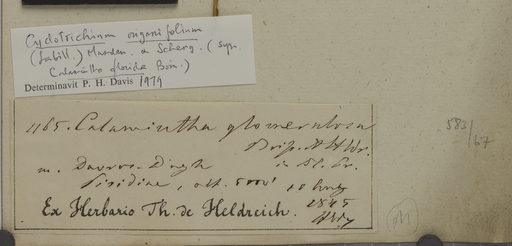 Cyclotrichium origanifolium
(Labill.) Manden. & Scheng. (syn.
Calamintha florida Boiss.)
Determinavit P. H. Davis 1979
1165. Calamintha glomerulosa
m. Davros-Dagh
Pisidiae, alt. 5000'
1845
Ex Herbario Th. de Heldreich.
583/67